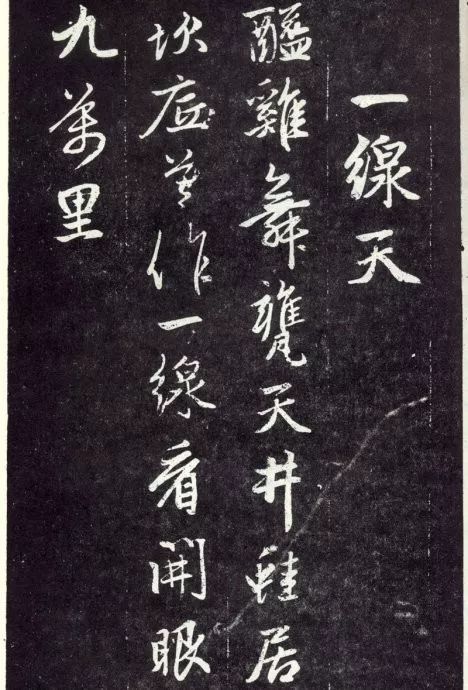 一線天
醯雞舞甕天井蛙居
坎底莫作一線看開眼
九萬里